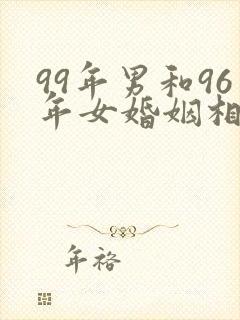 99年男和96
年女婚姻相
年袼